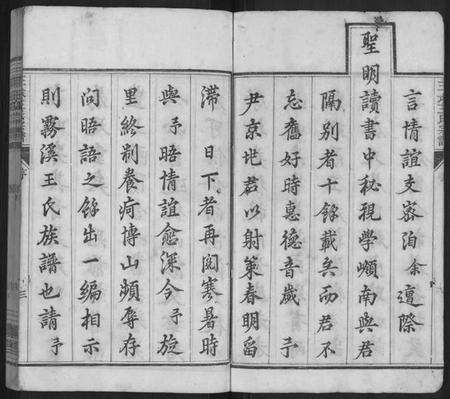 言情誼支宻洎余遭際
聖明讀書中秘視學嶺南與君
隔別者十餘載矣而君不
忘舊好時惠德音歲予
尹京地君以射策春明留
滯日下者再閱寒暑時
與予晤情誼愈深今予旋
里終制養疴博山頻辱存
問晤語之餘出一編相示
則霧溪王氏族譜也請予